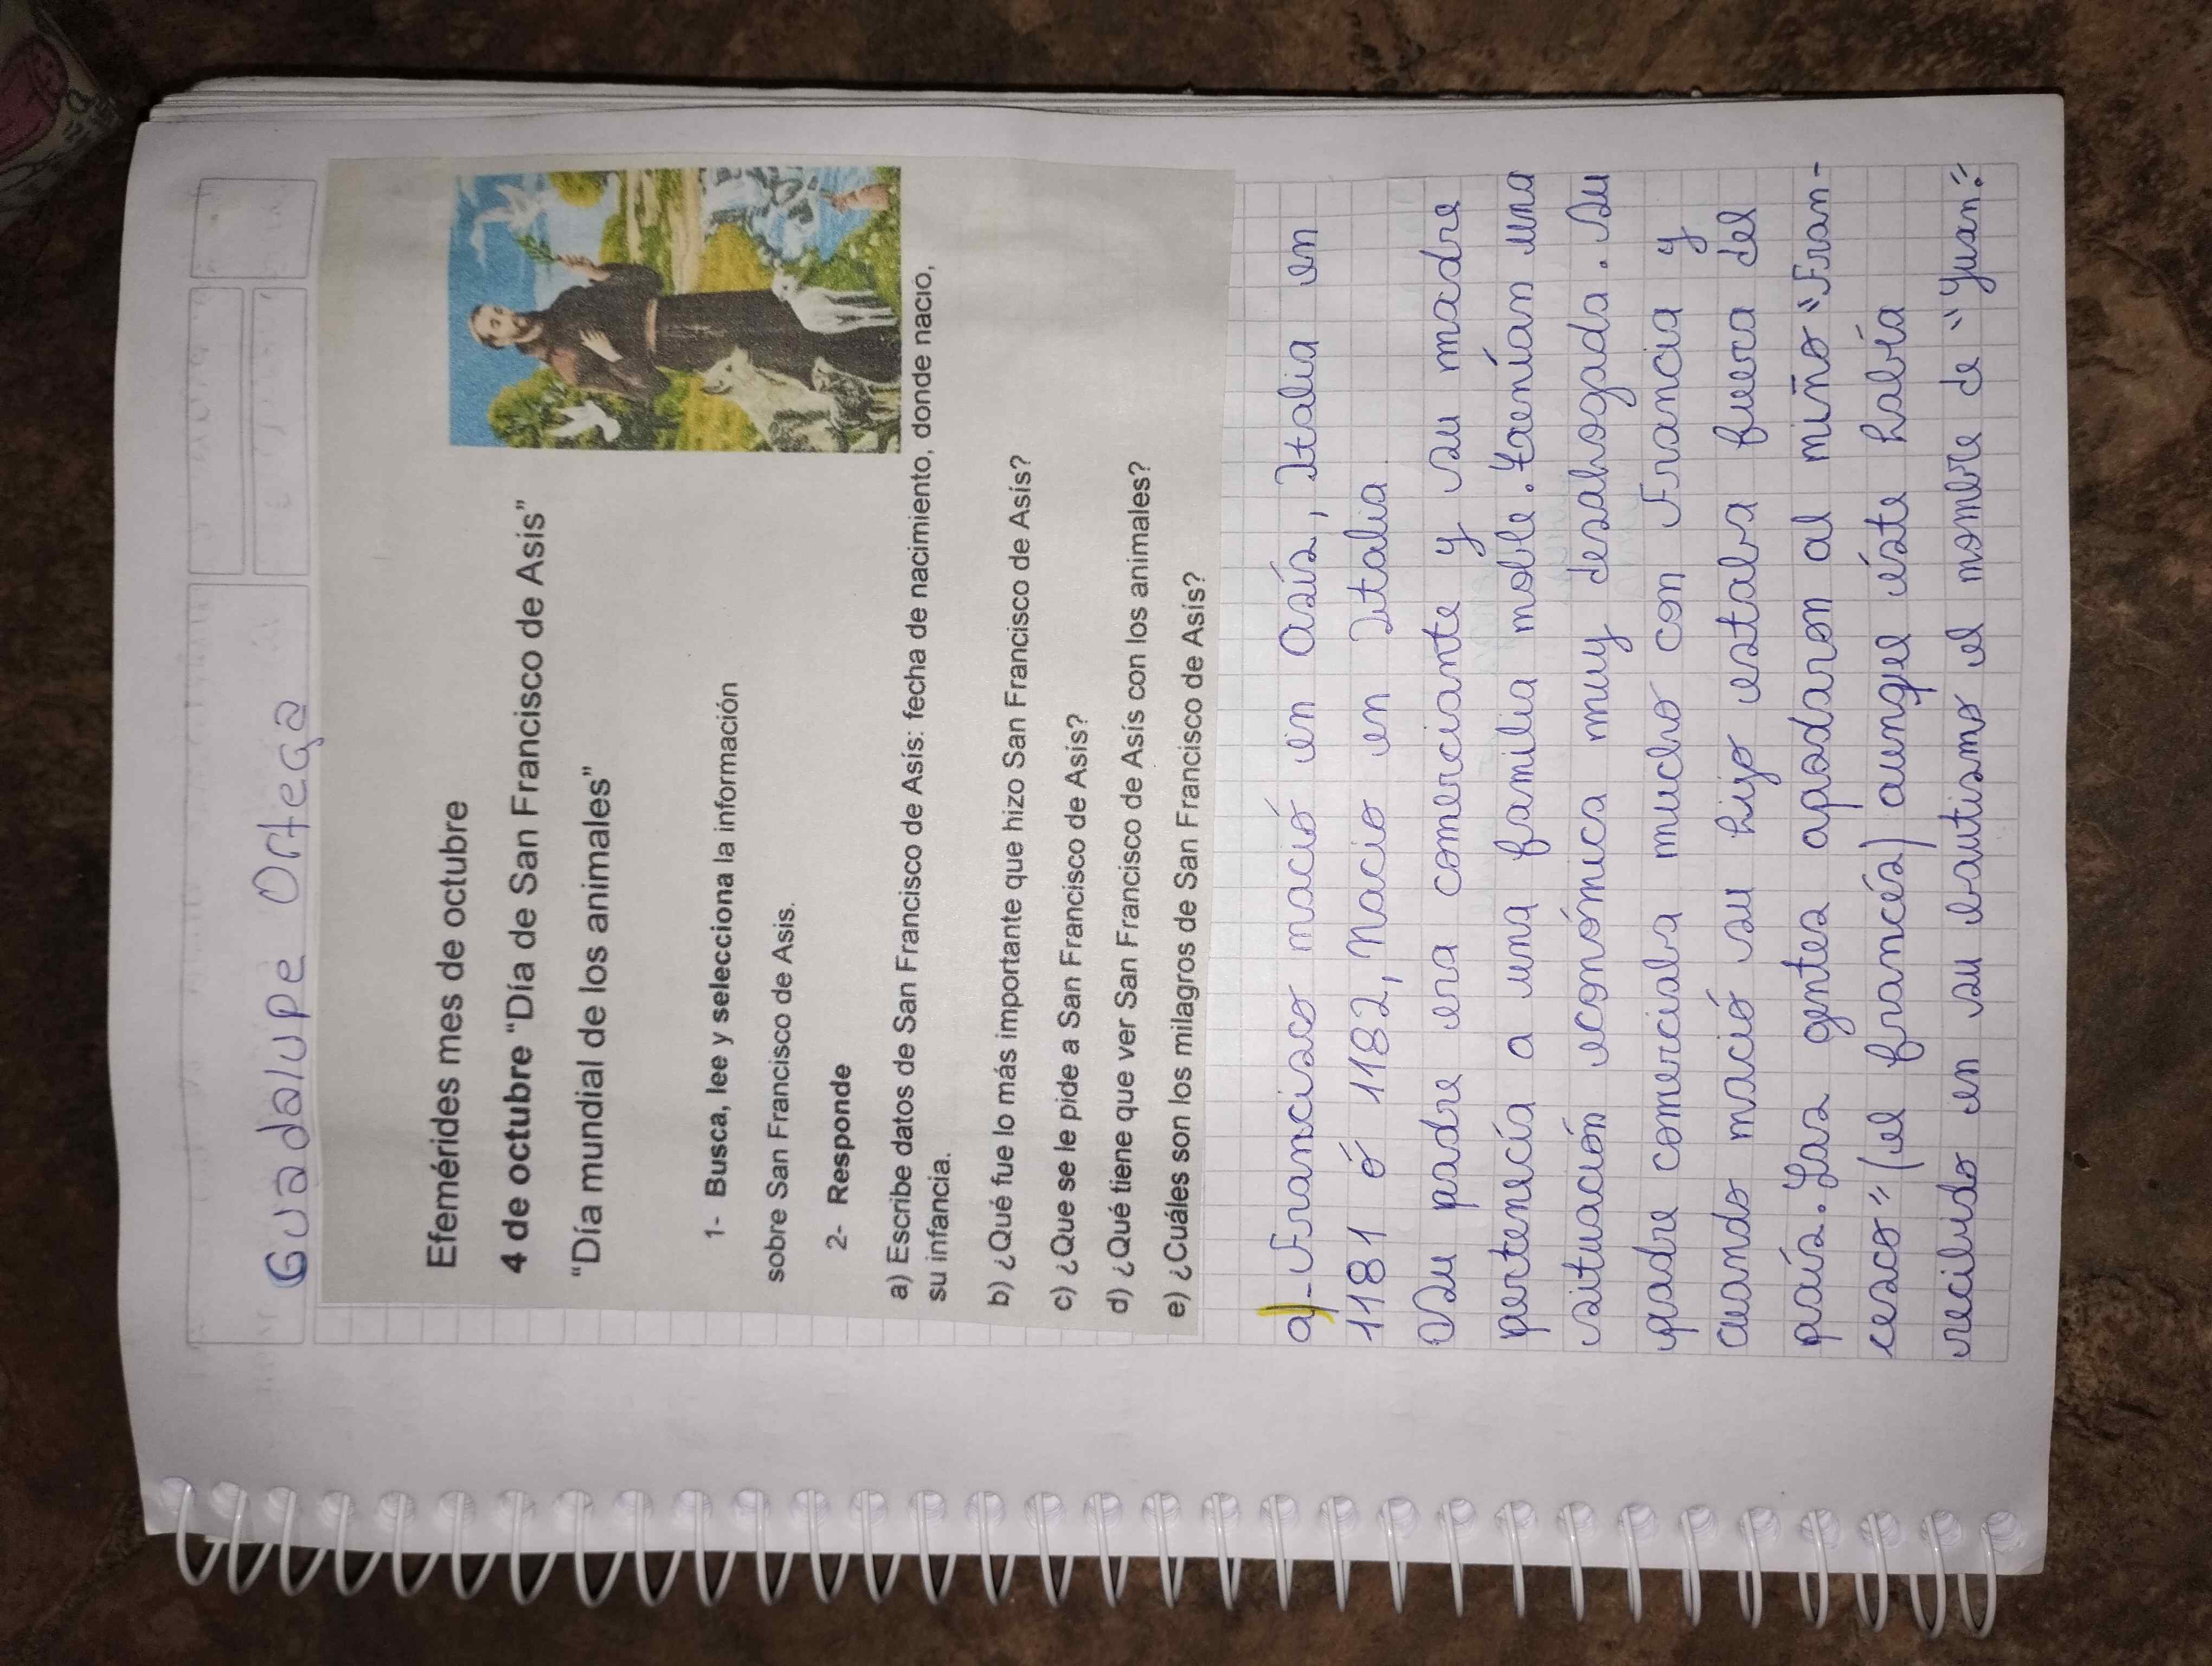 Guadalupe Ortega
Efemérides mes de octubre
4 de octubre "Día de San Francisco de Asís"
"Día mundial de los animales"
1- Busca, lee y selecciona la información
sobre San Francisco de Asis.
2- Responde
a) Escribe datos de San Francisco de Asís: fecha de nacimiento, donde nacio,
su infancia.
b) ¿Qué fue lo más importante que hizo San Francisco de Asís?
c) ¿Que se le pide a San Francisco de Asis?
d) ¿Qué tiene que ver San Francisco de Asís con los animales?
e) ¿Cuáles son los milagros de San Francisco de Asís?
a)-Francisco nació en Asís, Italia en
1181 ó 1182, Nacio en Italia
Su padre era comerciante y su madre
pertenecía a una familia noble. tenían una
situación económica muy desahogada. Su
padre comerciaba mucho con Francia y
cuando nació su hijo estaba fuera del
país. Las gentes apodaron al niño "Fran-
cesco" (el francés) aunqe éste había
recibido en su bautismo el nombre de "Juan".